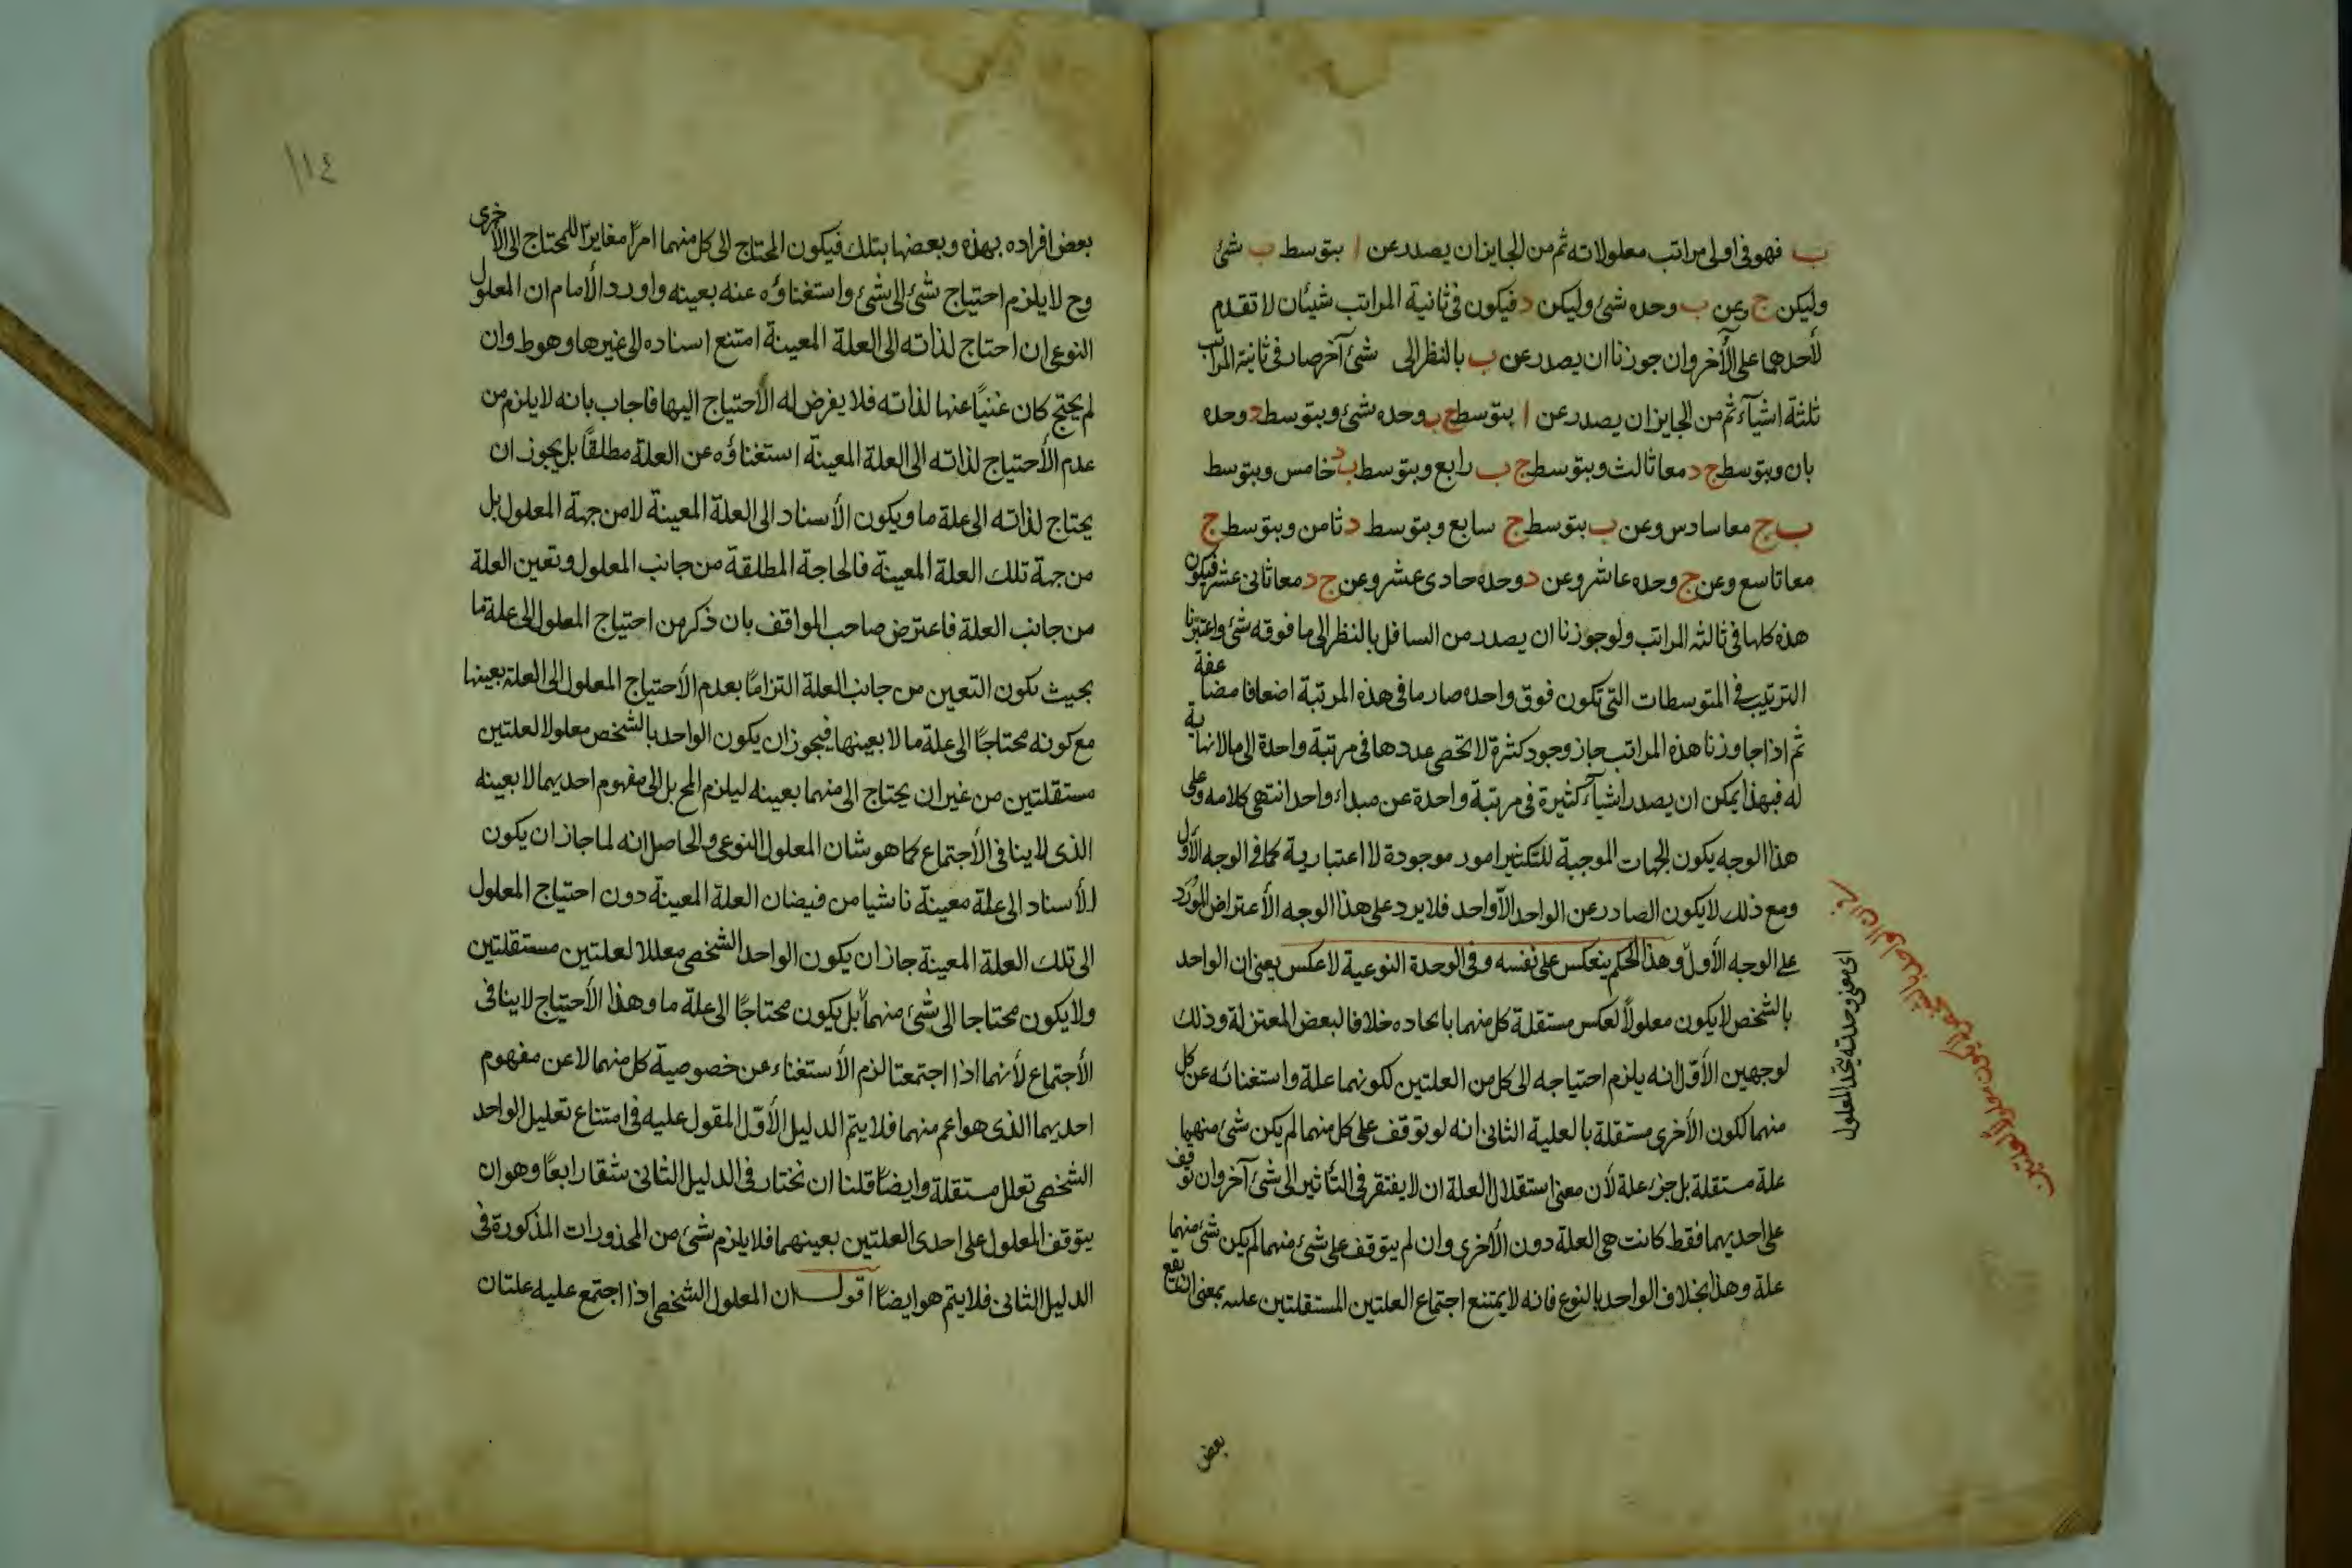 ب فهو فى اولى مراتب معلولاته ثم من الجايز ان يصدر عن ا بتوسط ب شئ
وليكن ج وعن ب وحده شئ وليكن د فيكون فى ثانية المراتب شيئان لا تقدم
لأحدهما على الأخر وان جوزنا ان يصدر عن ب بالنظر الى شئ آخر صار فى ثانية المراتب
ثلثة اشيآء ثم من الجايز ان يصدر عن ا بتوسط ج ب وحده شئ وبتوسط د وحده
بان وبتوسط ج د معا ثالث وبتوسط ج ب رابع وبتوسط ب د خامس وبتوسط
ب ج معا سادس وعن ب بتوسط ج سابع وبتوسط د ثامن وبتوسط ج
معا تاسع وعن ج وحده عاشر وعن د وحده حادى عشر وعن ج د معا ثانى عشر فيكون
هذه كلها فى ثالثه المراتب ولو جوزنا ان يصدر من السافل بالنظر الى ما فوقه شئ واعتبرنا
الترتيب فى المتوسطات التى تكون فوق واحده صار ما فى هذه المرتبة اضعافا مضاعفة
ثم اذا جاوزنا هذه المراتب جاز وجود كثرة لا تحصى عددها فى مرتبة واحدة الى ما لا نهاية
له فبهذا يمكن ان يصدر اشيآء كثيرة فى مرتبة واحدة عن مبداء واحد انتهى كلامه وعلى
هذا الوجه يكون الجهات الموجبة للتكثير امور موجودة لا اعتبارية كما فى الوجه الأول
ومع ذلك لا يكون الصادر عن الواحد الآ واحد فلا يرد على هذا الوجه الأعتراض المورد
على الوجه الأول وهذا الحكم ينعكس على نفسه وفى الوحدة النوعية لا عكس يعنى ان الواحد
بالشخص لا يكون معلولاً لعكس مستقلة كل منهما باتحاده خلافا لبعض المعتزلة وذلك
لوجهين الأول انه يلزم احتياجه الى كل من العلتين لكونهما علة واستغنائه عن كل
منهما لكون الأخرى مستقلة بالعلية الثانى انه لو توقف على كل منهما لم يكن شئ منهما
علة مستقلة بل جزء علة لأن معنى استقلال العلة ان لا يفتقر فى التأثير الى شئ آخر وان توقف
على احديهما فقط كانت هى العلة دون الأخرى وان لم يتوقف على شئ منهما لم يكن شئ منهما
علة وهذا بخلاف الواحد بالنوع فانه لا يمتنع اجتماع العلتين المستقلتين عليه بمعنى ان يقع
بعض
اى معنى وحدته يتحد المعلول
ان الواحد بالشخص لا يكون معلولاً لعلتين
١١٤
بعض افراده بهذه وبعضها بتلك فيكون المحتاج الى كل منهما امرًا مغايرًا للمحتاج الى الأخرى
وح لا يلزم احتياج شئ الى شئ واستغناؤه عنه بعينه واورد الأمام ان المعلول
النوعى ان احتاج لذاته الى العلة المعينة امتنع اسناده الى غيرها وهو ط وان
لم يحتج كان غنيًا عنها لذاته فلا يفرض له الأحتياج اليها فاجاب بانه لا يلزم من
عدم الأحتياج لذاته الى العلة المعينة استغناؤه عن العلة مطلقًا بل يجوز ان
يحتاج لذاته الى علة ما ويكون الأسناد الى العلة المعينة لا من جهة المعلول بل
من جهة تلك العلة المعينة فالحاجة المطلقة من جانب المعلول وتعين العلة
من جانب العلة فاعترض صاحب المواقف بان ذكر من احتياج المعلول الى علة ما
بحيث يكون التعين من جانب العلة التزامًا بعدم الأحتياج المعلول الى العلة بعينها
مع كونه محتاجًا الى علة ما لا بعينها فيجوز ان يكون الواحد بالشخص معلولا لعلتين
مستقلتين من غير ان يحتاج الى منهما بعينه ليلزم المح بل الى مفهوم احديهما لا بعينه
الذى لا ينافى الأجتماع كما هو شان المعلول النوعى والحاصل انه لما جاز ان يكون
الأسناد الى علة معينة ناشيا من فيضان العلة المعينة دون احتياج المعلول
الى تلك العلة المعينة جاز ان يكون الواحد الشخصى معللا لعلتين مستقلتين
ولا يكون محتاجا الى شئ منهما بل يكون محتاجًا الى علة ما وهذا الأحتياج لا ينافى
الأجتماع لأنهما اذا اجتمعتا لزم الأستغناء عن خصوصية كل منهما لا عن مفهوم
احديهما الذى هو اعم منهما فلا يتم الدليل الأول المقول عليه فى امتناع تعليل الواحد
الشخصى تعلل مستقلة وايضًا قلنا ان نختار فى الدليل الثانى شقا رابعًا وهو ان
يتوقف المعلول على احدى العلتين بعينهما فلا يلزم شئ من المحذورات المذكورة فى
الدليل الثانى فلا يتم هو ايضًا اقول ان المعلول الشخصى اذا اجتمع عليه علتان